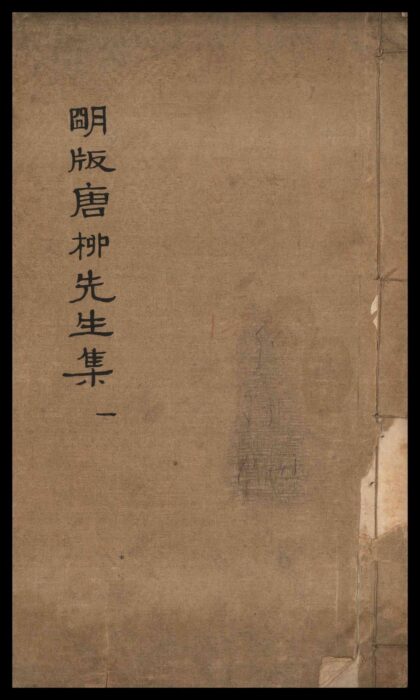 朙版唐柳先生集 一